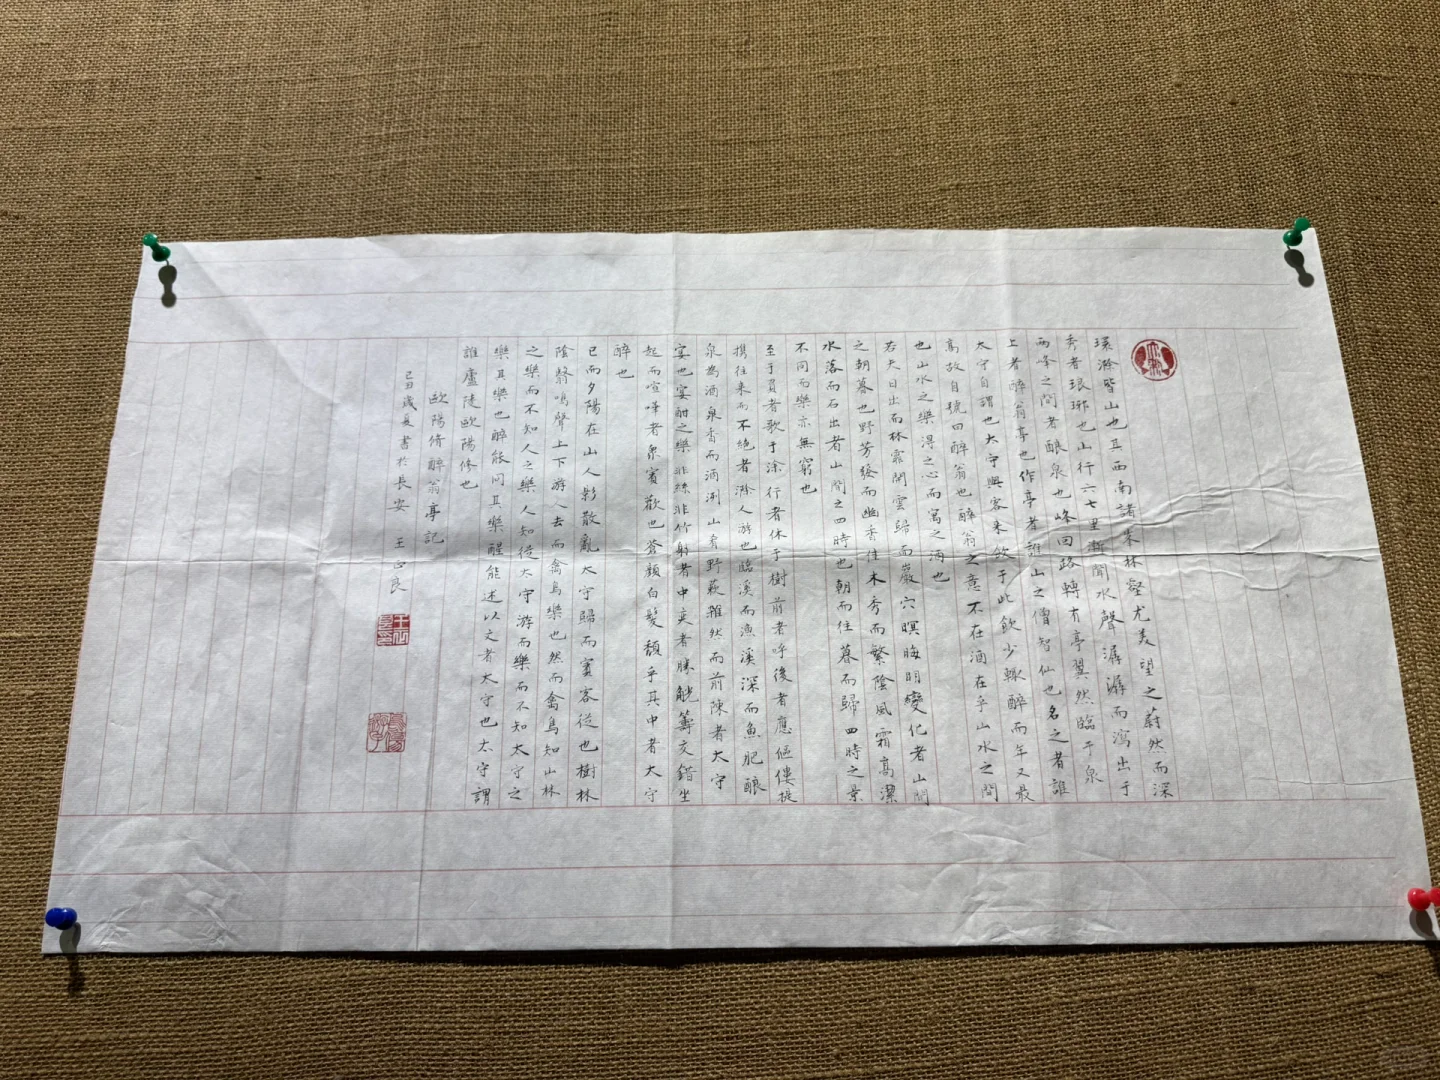 環滁皆山也其西南諸峯林壑尤美望之蔚然而深
秀者琅琊也山行六七里漸聞水聲潺潺而瀉出于
兩峰之間者釀泉也峰回路轉有亭翼然臨于泉
上者醉翁亭也作亭者誰山之僧智仙也名之者誰
太守自謂也太守與客来飲于此飲少輒醉而年又最
高故自號曰醉翁也醉翁之意不在酒在乎山水之間
也山水之樂得之心而寓之酒也
若夫日出而林霏開雲歸而巖穴暝晦明變化者山間
之朝暮也野芳發而幽香佳木秀而繁陰風霜高潔
水落而石出者山間之四時也朝而往暮而歸四時之景
不同而樂亦無窮也
至于負者歌于涂行者休于樹前者呼後者應傴僂提
携往来而不絕者滁人游也臨溪而漁溪深而魚肥釀
泉為酒泉香而酒洌山肴野蔌雜然而前陳者太守
宴也宴酣之樂非絲非竹射者中奕者勝觥籌交錯坐
起而喧嘩者衆賓歡也蒼顏白髮頹乎其中者太守
醉也
已而夕陽在山人影散亂太守歸而賓客從也樹林
陰翳鳴聲上下游人去而禽鳥樂也然而禽鳥知山林
之樂而不知人之樂人知從太守游而樂而不知太守之
樂其樂也醉能同其樂醒能述以文者太守也太守謂
誰廬陵歐陽修也
歐陽脩醉翁亭記
己丑歲夏書於長安 王正良